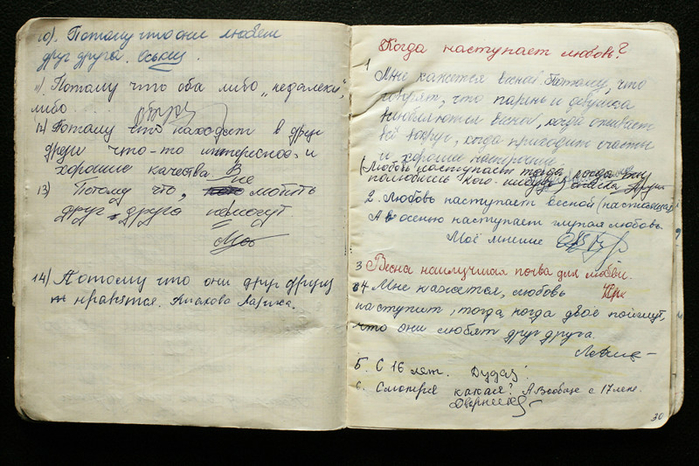 10). Потому что они любят
друг друга.
11) Потому что оба либо „недалеки",
либо
12) Потому что находят в друг
друге что-то интересное и
хорошие качества
13) Потому что, не любить
друг друга не могут
14) Потому что они друг другу
нравятся. Лариса.
Когда наступает любовь?
1 Мне кажется весной. Потому, что
говорят, что парень и девушка
влюбляются весной, когда оживает
всё вокруг, когда приходит счастье
и хорошее настроение.
Любовь наступает тогда, когда
2. Любовь наступает весной (настоящая)
А осенью наступает глупая любовь.
Моё мнение
3 Весна наилучшая почва для любви.
4. Мне кажется, любовь
наступит, тогда, когда двое поймут,
что они любят друг друга.
5. С 16 лет. Дудаз
6. Смотря какая? А вообще с 17 лет.
30